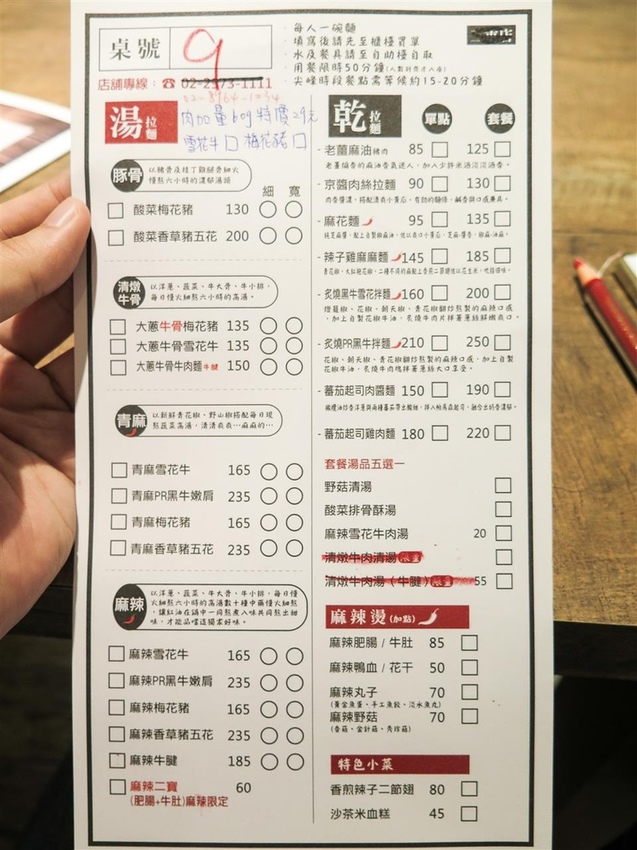 桌號 9
店舖專線：☎ 02-2973-1111
02-8964-1234
·每人一碗麵
·填寫後請先至櫃檯買單
·水及餐具請至自助檯自取
·用餐限時50分鐘(人數到齊才入座)
·尖峰時段餐點需等候約15-20分鐘
湯拉麵
肉加量60g特價29元
雪花牛□ 梅花豬□
豚骨
以豬骨及桂丁雞腿骨細火
慢熬六小時的濃郁湯頭
細 寬
酸菜梅花豬 130
酸菜香草豬五花 200
清燉牛骨
以洋蔥、蔬菜、牛大骨、牛小排，
每日慢火細熬六小時的高湯。
大蔥牛骨梅花豬 135
大蔥牛骨雪花牛 135
大蔥牛骨牛肉麵牛腱 150
青麻
以新鮮青花椒、野山椒搭配每日現
熬蔬菜高湯，清清爽爽…麻麻的…
青麻雪花牛 165
青麻PR黑牛嫩肩 235
青麻梅花豬 165
青麻香草豬五花 235
麻辣
以洋蔥、蔬菜、牛大骨、牛小排，每日慢
火細熬六小時的高湯數十種中藥慢火細熬
，讓紅油在鍋中一同熬煮入味共同熬出甜
味，才能品嚐這獨家好味。
麻辣雪花牛 165
麻辣PR黑牛嫩肩 235
麻辣梅花豬 165
麻辣香草豬五花 235
麻辣牛腱 185
麻辣二寶 60
(肥腸+牛肚)麻辣限定
乾拉麵 單點 套餐
·老薑麻油豬肉 85 125
老薑煸香的麻油香氣迷人，加入少許米酒淡淡酒香。
·京醬肉絲拉麵 90 130
·麻花麵 95 135
·辣子雞麻麻麵 145 185
·炙燒黑牛雪花拌麵 160 200
燈籠椒、花椒、朝天椒、青花椒翻炒熬製的麻辣口感
，加上自製花椒牛油，炙燒牛肉片拌著蔥絲鮮嫩爽口。
·炙燒PR黑牛拌麵 210 250
花椒、朝天椒、青花椒翻炒熬製的麻辣口感，加上自製
花椒牛油，炙燒牛肉塊拌著蔥絲大口享受。
·蕃茄起司肉醬麵 150 190
·蕃茄起司雞肉麵 180 220
套餐湯品五選一
野菇清湯
酸菜排骨酥湯
麻辣雪花牛肉湯 20
清燉牛肉清湯 限量
清燉牛肉湯（牛腱）限量 55
麻辣燙(加點)
麻辣肥腸 / 牛肚 85
麻辣鴨血 / 花干 50
麻辣丸子 70
(黃金魚蛋、手工魚餃、淡水魚丸)
麻辣野菇 70
(香菇、金針菇、秀珍菇)
特色小菜
香煎辣子二節翅 80
沙茶米血糕 45